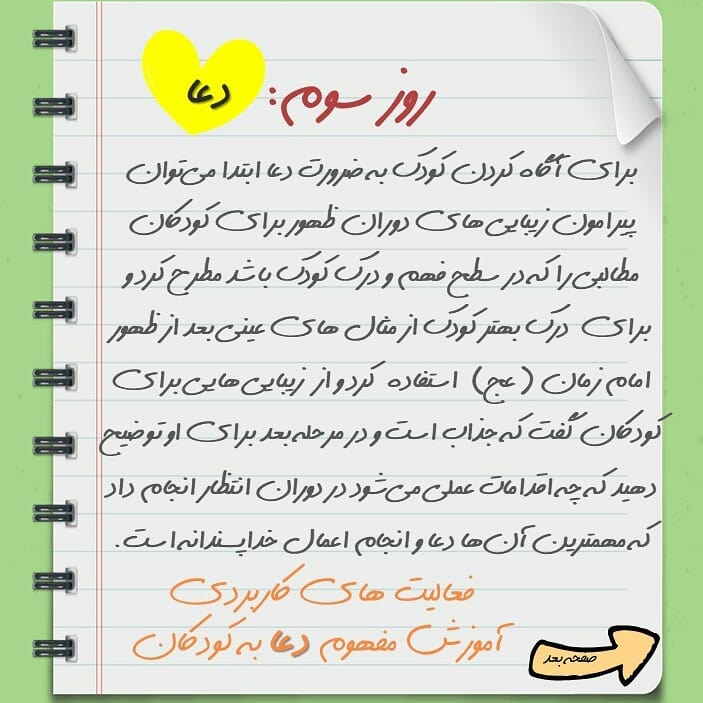 روز سوم: دعا
برای آگاه کردن کودک به ضرورت دعا ابتدا می‌توان
پیرامون زیبایی های دوران ظهور برای کودکان
مطالبی را که در سطح فهم و درک کودک باشد مطرح کرد و
برای درک بهتر کودک از مثال های عینی بعد از ظهور
امام زمان (عج) استفاده کرد و از زیبایی هایی برای
کودکان گفت که جذاب است و در مرحله بعد برای او توضیح
دهید که چه اقدامات عملی می‌شود در دوران انتظار انجام داد
که مهمترین آن‌ها دعا و انجام اعمال خداپسندانه است.
فعالیت های کاربردی
آموزش مفهوم دعا به کودکان
صفحه بعد